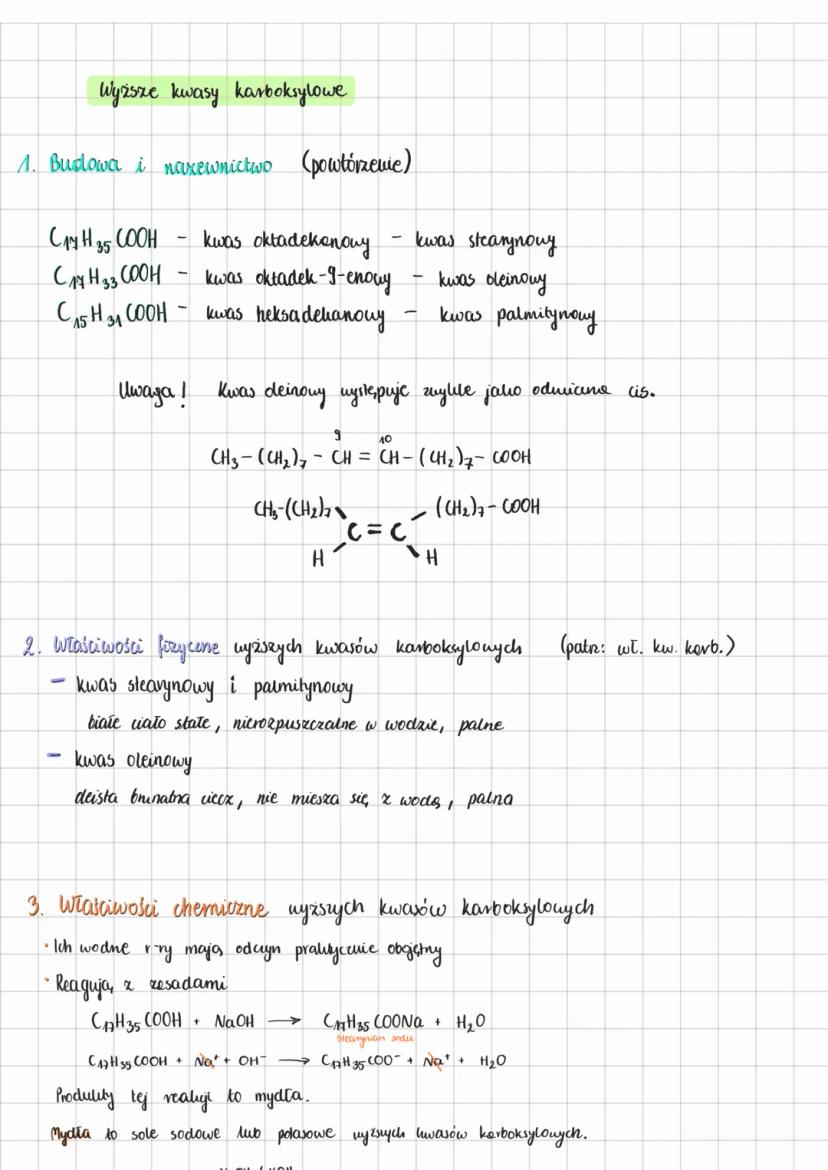 Wyższe kwasy karboksylowe
1. Budowa i nazewnictwo (powtórzenie)
C₁₇H₃₅COOH - kwas oktadekanowy - kwas stearynowy
C₁₇H₃₃COOH - kwas oktadek-9-enowy - kwas oleinowy
C₁₅H₃₁COOH - kwas heksadekanowy - kwas palmitynowy
Uwaga! Kwas oleinowy występuje zwykle jako odmiana cis.
9 10
CH₃-(CH₂)₇-CH=CH-(CH₂)₇-COOH
CH₃-(CH₂)₇ (CH₂)₇-COOH
C=C
H H
2. Właściwości fizyczne wyższych kwasów karboksylowych (patrz: wł. kw. karb.)
- kwas stearynowy i palmitynowy
białe ciało stałe, nierozpuszczalne w wodzie, palne
- kwas oleinowy
oleista brunatna ciecz, nie miesza się z wodą, palna
3. Właściwości chemiczne wyższych kwasów karboksylowych
· Ich wodne r-ry mają odczyn praktycznie obojętny
· Reagują z zasadami
C₁₇H₃₅COOH + NaOH → C₁₇H₃₅COONa + H₂O
stearynian sodu
C₁₇H₃₅COOH + Na⁺ + OH⁻ → C₁₇H₃₅COO⁻ + Na⁺ + H₂O
Produkty tej reakcji to mydła.
Mydła to sole sodowe lub potasowe wyższych kwasów karboksylowych.